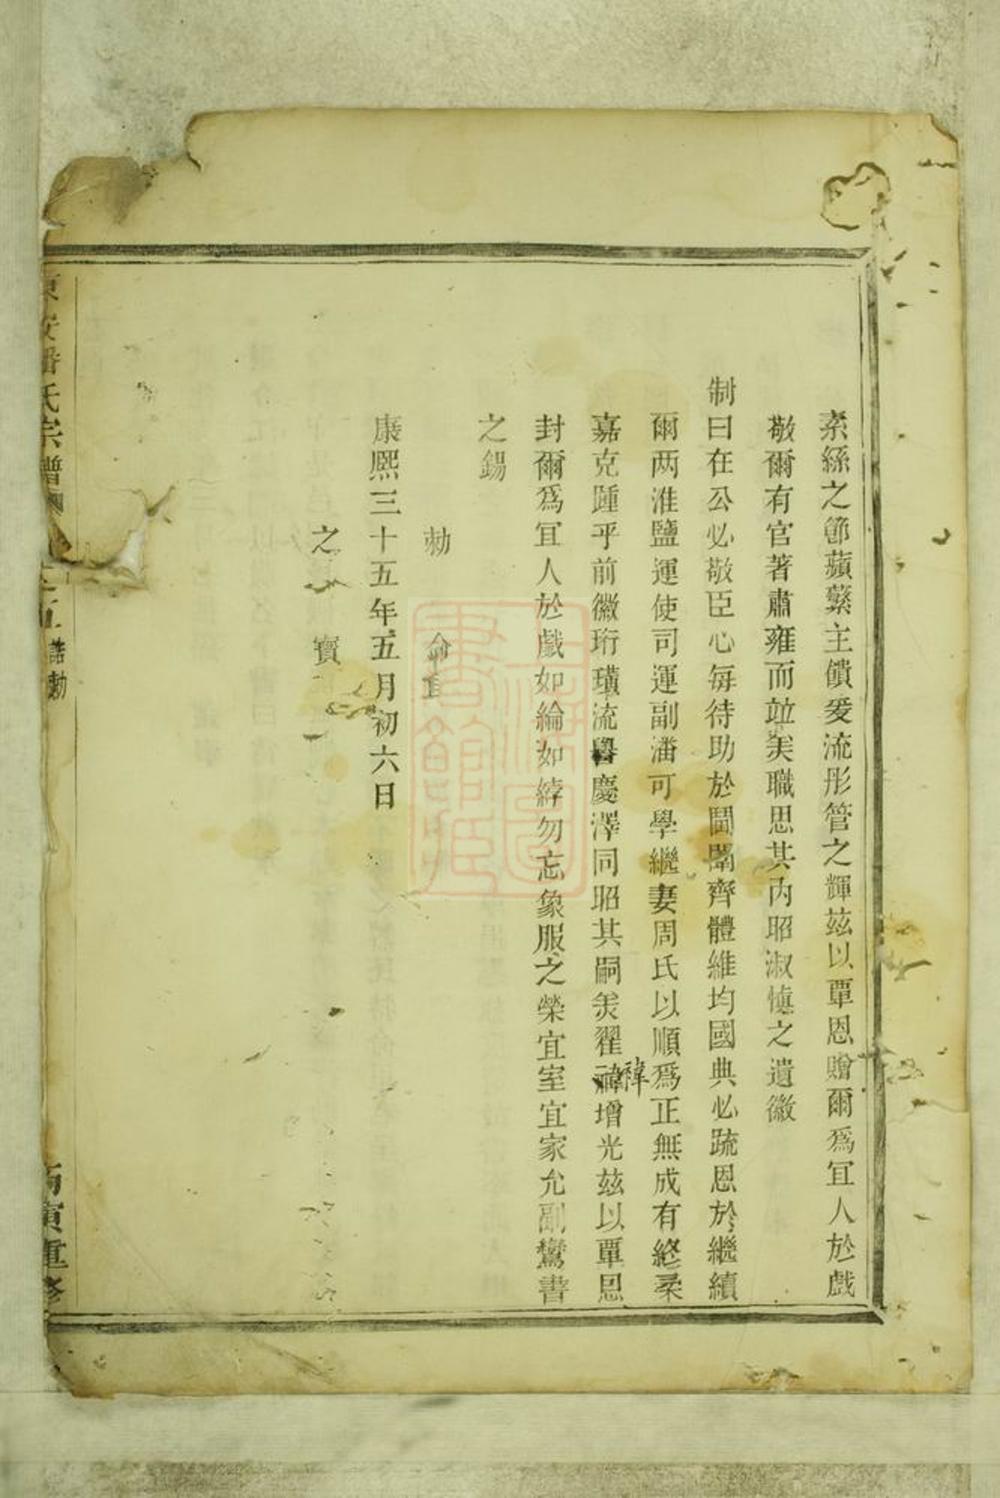 素絲之節蘋蘩主饋爰流彤管之輝茲以覃恩贈爾爲宜人於戲
敬爾有官著肅雍而竝美職思其內昭淑慎之遺徽
制曰在公必敬臣心每待助於閫閾齊體維均國典必疏恩於繼續
爾两淮鹽運使司運副潘可學繼妻周氏以順爲正無成有終柔
嘉克踵乎前徽珩璜流譽慶澤同昭其嗣美翟褘增光茲以覃恩
褘
封爾爲宜人於戲如綸如綍勿忘象服之榮宜室宜家允副鸞書
之錫
勑命
康熙三十五年五月初六日
之寶
東安潘氏宗譜 五 誥勅 丙寅重修